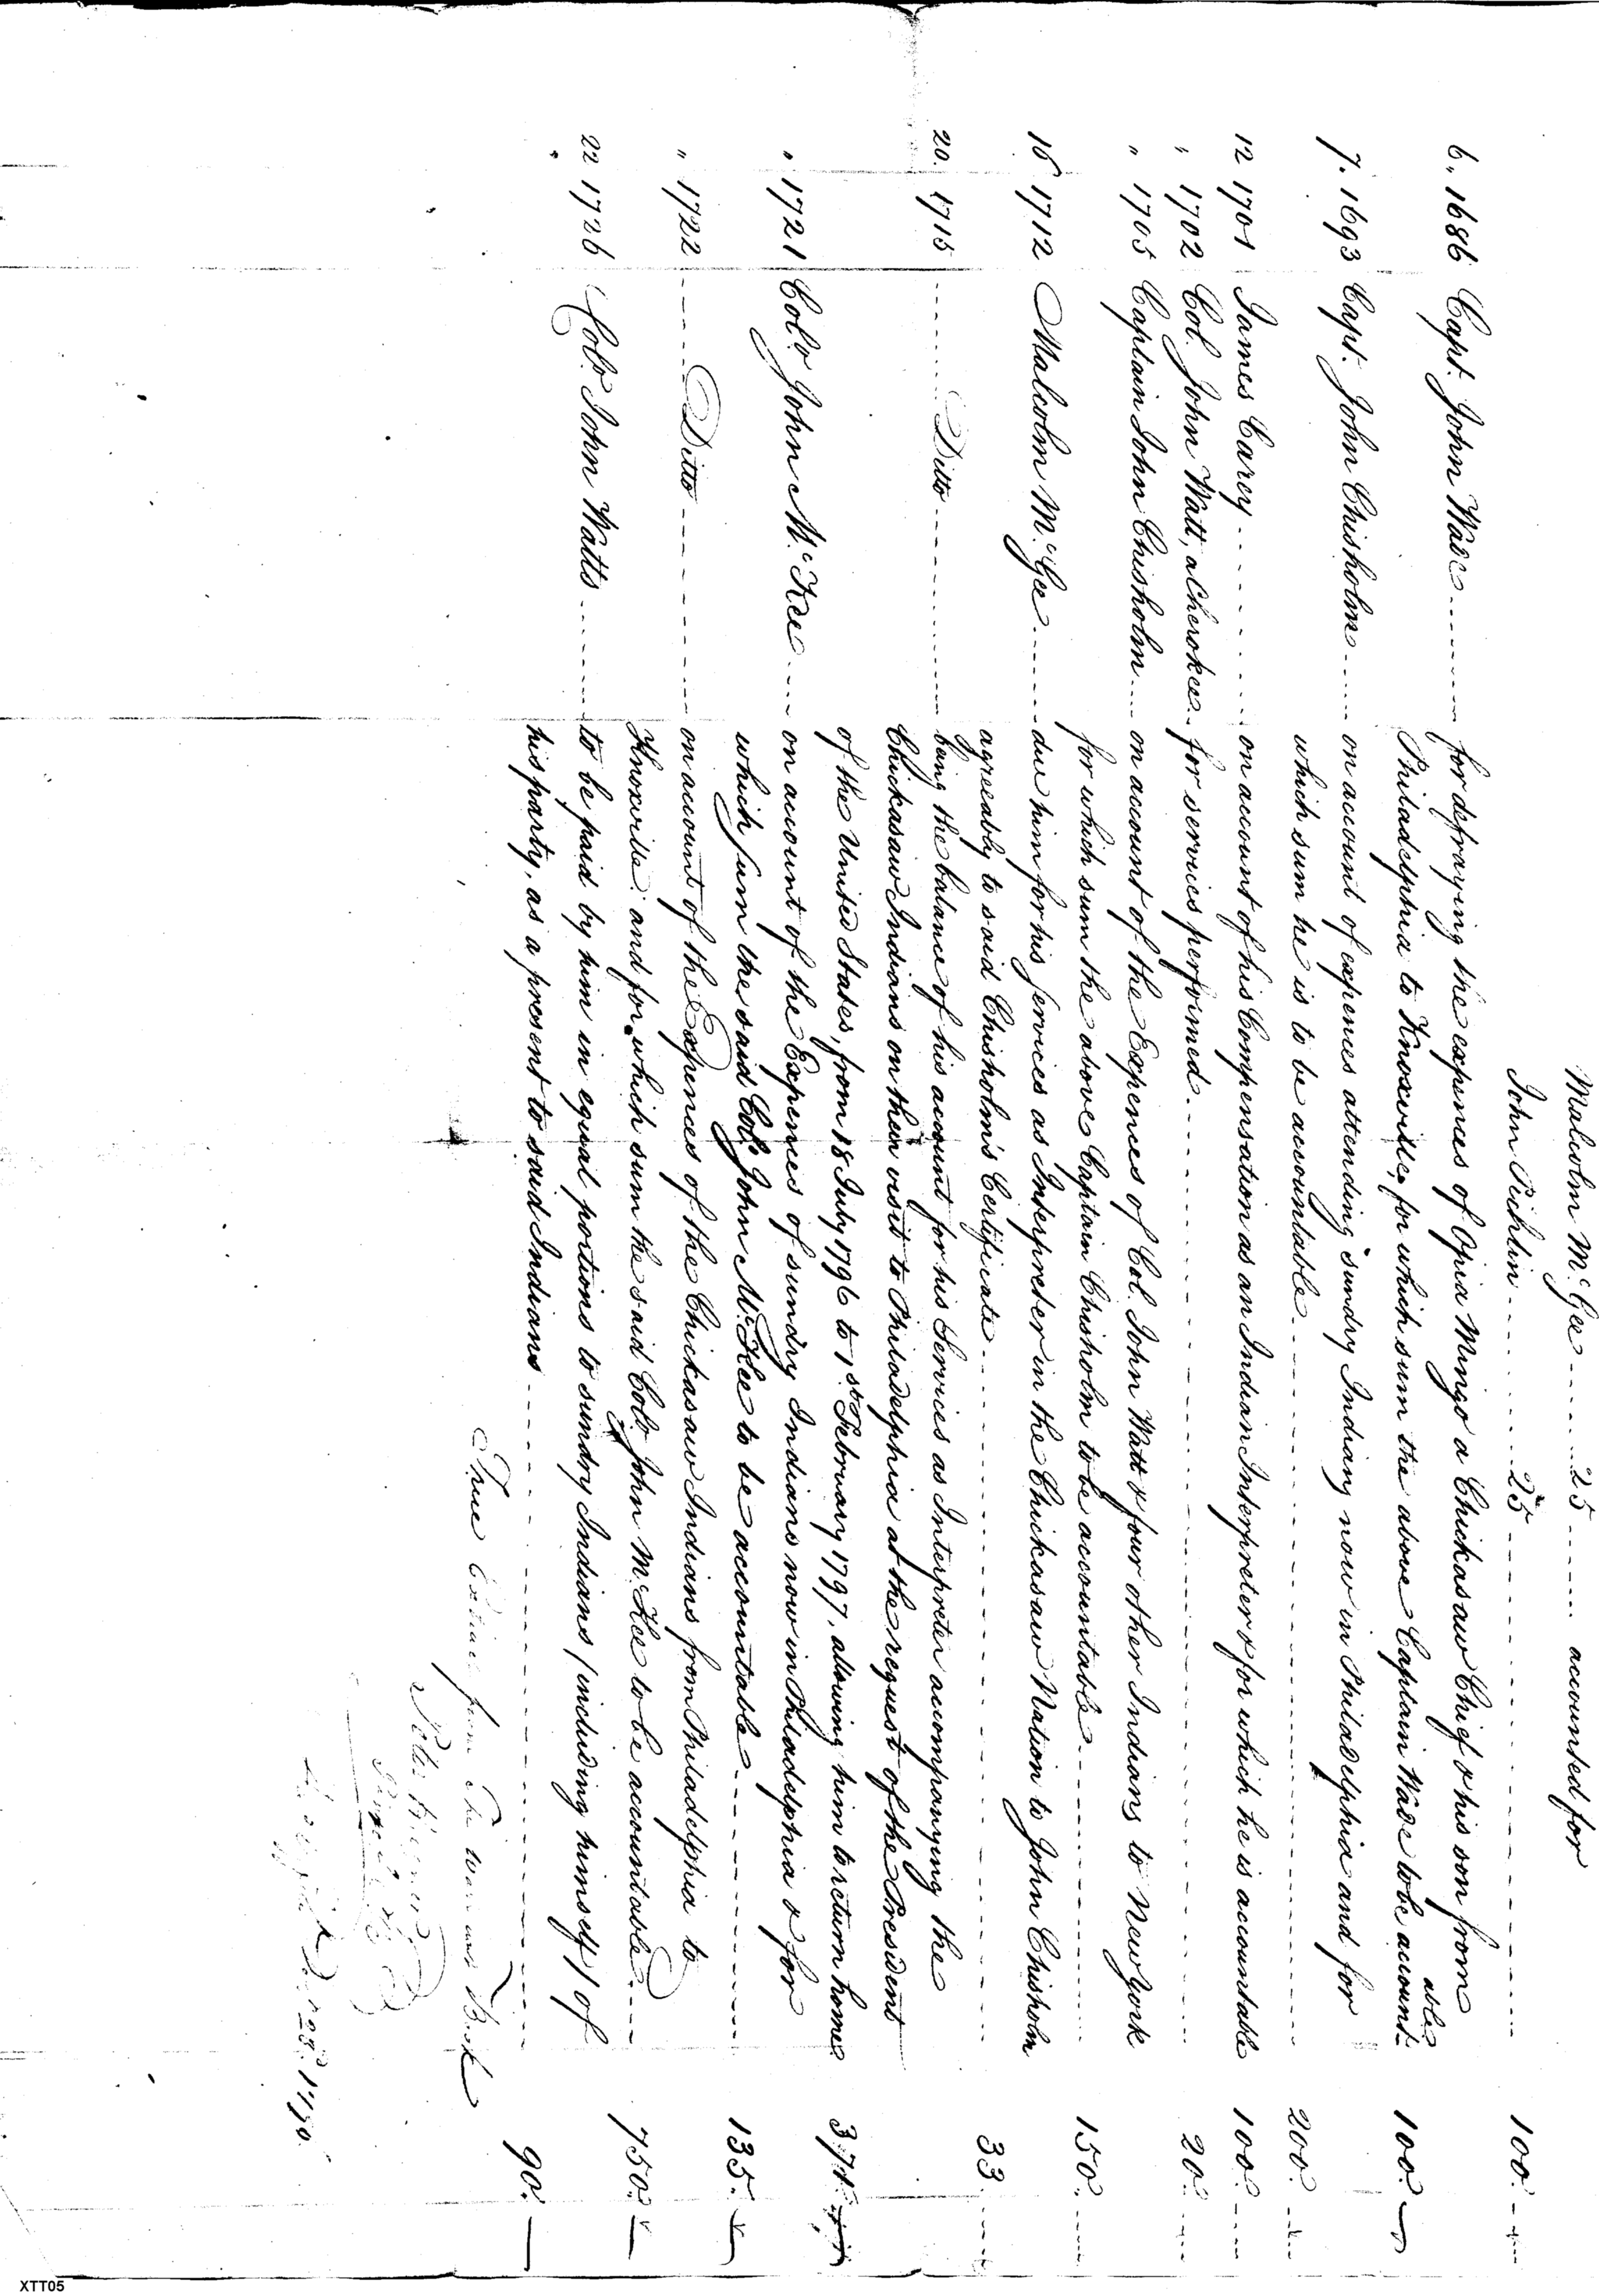 Malcolm McGee ........ 25 ........ accounted for
John Pichlin ........ 25 ........ 100.
6. 1686 Capt. John Wade ........ for defraying the expences of Opia Mingo a Chickasaw Chief & his son from
Philadelphia to Knoxville, for which sum the above Captain Wade to be accountable 100.
7. 1693 Capt. John Chisholm ...... on account of expences attending sundry Indians now in Philadelphia and for
which sum he is to be accountable ........ 200.
12 1701 James Carey ........ on account of his Compensation as an Indian Interpreter & for which he is accountable 100.
" 1702 Col. John Watt, a Cherokee .. for services performed ........ 20.
" 1705 Captain John Chisholm .... on account of the Expences of Col. John Watt & four other Indians to New York
for which sum the above Captain Chisholm to be accountable ........ 150.
16 1712 Malcolm McGee ........ due him for his services as Interpreter in the Chickasaw Nation to John Chisholm
agreeably to said Chisholm's Certificate ........ 33
20. 1715 ........ Ditto ........ being the balance of his account for his Services as Interpreter accompanying the
Chickasaw Indians on their visit to Philadelphia at the request of the President
of the United States, from 18 July 1796 to 1st February 1797, allowing him to return home
" 1721 Colo John McKee .... on account of the Expences of sundry Indians now in Philadelphia & for
which sum the said Colo John McKee to be accountable ........ 135.
" 1722 ........ Ditto ........ on account of the Expences of the Chickasaw Indians from Philadelphia to
Knoxville: and for which sum the said Colo John McKee to be accountable .... 750.
22 1726 Colo John Watts ........ to be paid by him in equal portions to sundry Indians (including himself) of
his party, as a present to said Indians ........ 90.
True from the
XTT05